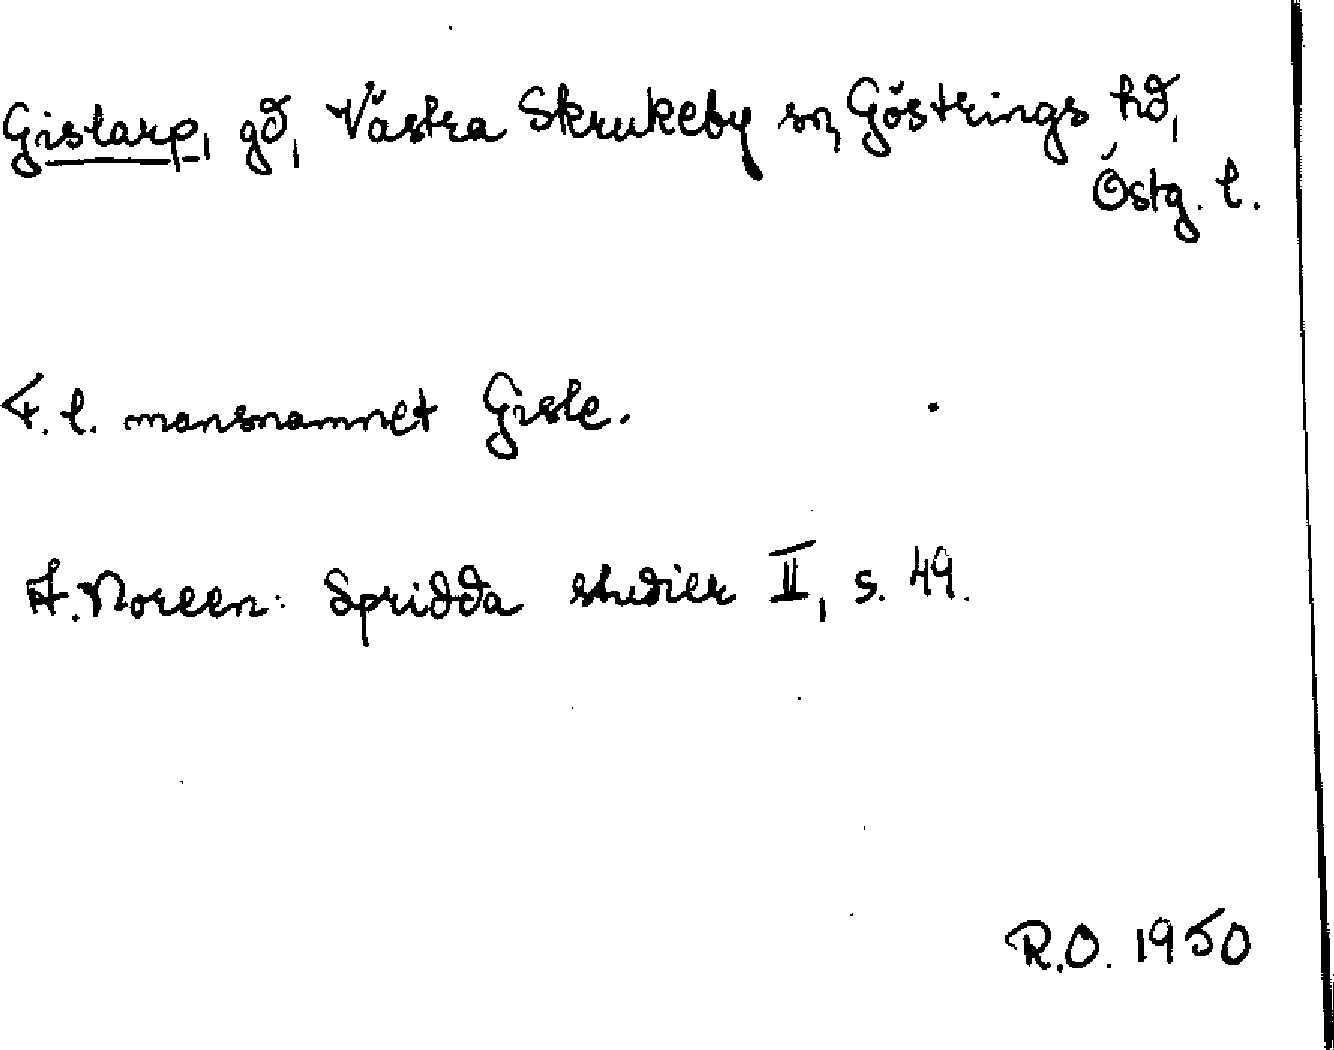 Gislarp, gd, Västra Skrukeby sn, Göstrings hd,
Östg. l.
F. l. mansnamnet Gisle.
A. Noreen: Spridda studier II, s. 49.
R.O. 1950